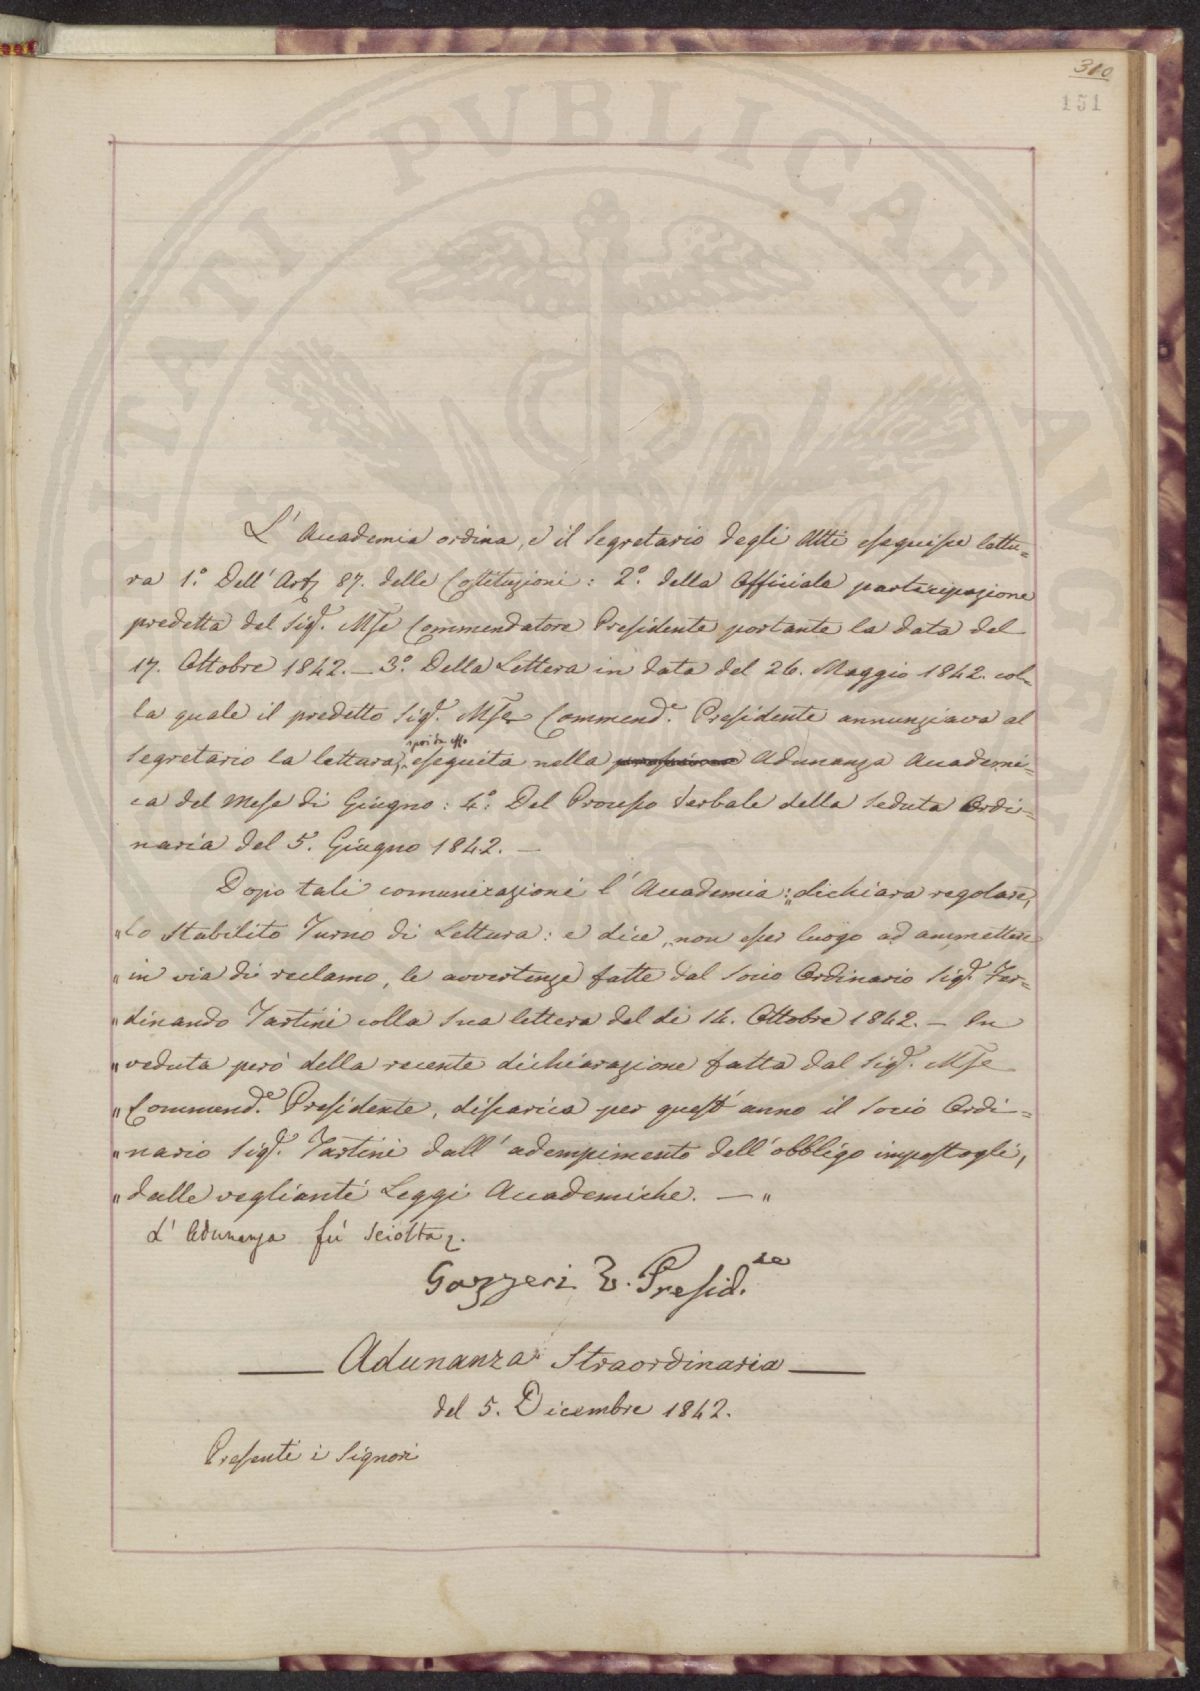 310
151
L'Accademia ordina, e il Segretario degli Atti eseguisce lettu=
ra 1.° Dell'Art. 87. delle Costituzioni: 2.° della Officiale partecipazione
predetta del Sig.r M.se Commendatore Presidente portante la data del
17. Ottobre 1842. — 3.° Della Lettera in data del 26. Maggio 1842. col=
la quale il predetto Sig.r M.se Commend.e Presidente annunziava al
Segretario la lettura, poi da esso eseguita nella Adunanza Accademi=
ca del Mese di Giugno: 4.° Del Processo Verbale della Seduta Ordi=
naria del 5. Giugno 1842. —
Dopo tali comunicazioni l'Accademia: „dichiara regolare,
„lo Stabilito Turno di Lettura: e dice, non esser luogo ad ammettere
„in via di reclamo, le avvertenze fatte dal Socio Ordinario Sig.r Fer=
„dinando Tartini colla Sua lettera del dì 14. Ottobre 1842. — In
„veduta però della recente dichiarazione fatta dal Sig.r M.se
„Commend.e Presidente, discarica per quest'anno il Socio Ordi=
„nario Sig.r Tartini dall'adempimento dell'obbligo impostogli,
„dalle veglianti Leggi Accademiche. — „
L'Adunanza fu Sciolta.
Gazzeri V. Presid.te
Adunanza Straordinaria
del 5. Dicembre 1842.
Presenti i Signori
CITATI PVBLICAE